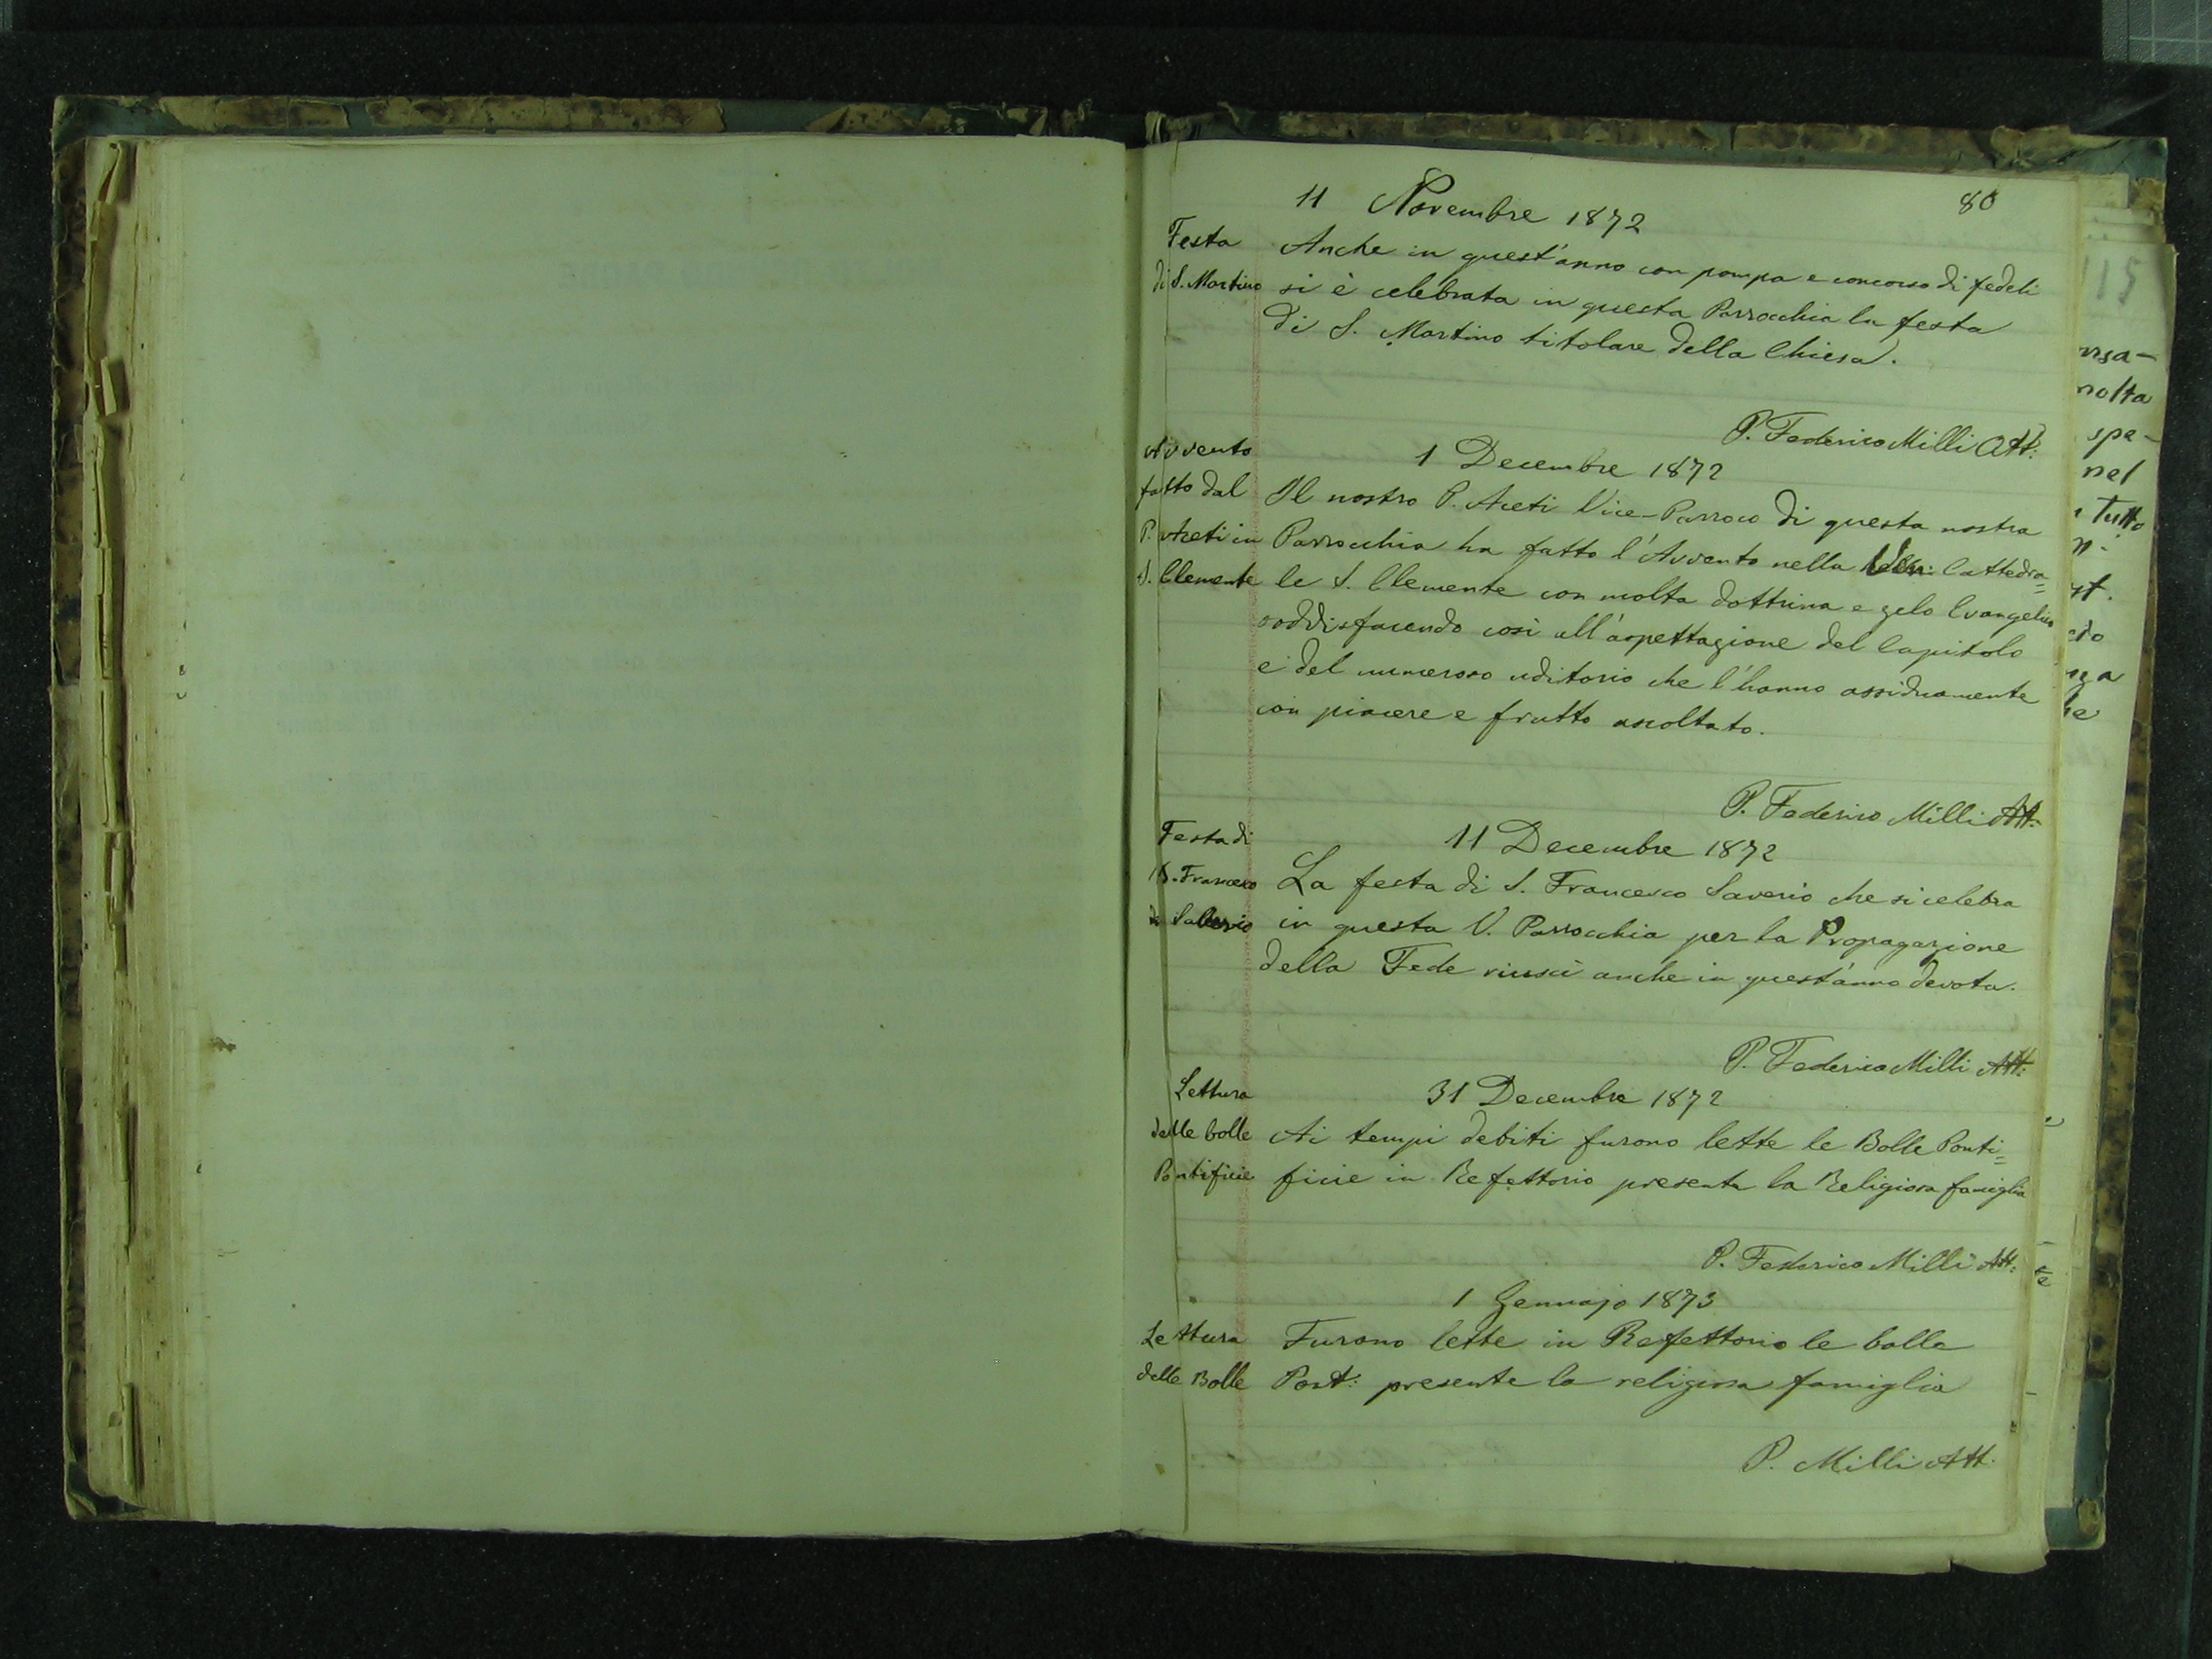 80
11 Novembre 1872
Festa
di S. Martino
Anche in quest'anno con pompa e concorso di fedeli
si è celebrata in questa Parrocchia la festa
di S. Martino titolare della Chiesa.
P. Federico Milli Att:
Avvento
fatto dal
P. Aceti in
S. Clemente
1 Decembre 1872
Il nostro P. Aceti Vice-Parroco di questa nostra
Parrocchia ha fatto l'Avvento nella Ven: Cattedra=
le S. Clemente con molta dottrina e zelo Evangelico
soddisfacendo così all'aspettazione del Capitolo
e del numeroso uditorio che l'hanno assiduamente
con piacere e frutto ascoltato.
P. Federico Milli Att:
Festa di
S. Francesco
Saverio
11 Decembre 1872
La festa di S. Francesco Saverio che si celebra
in questa V. Parrocchia per la Propagazione
della Fede riuscì anche in quest'anno devota.
P. Federico Milli Att:
Lettura
delle bolle
Pontificie
31 Decembre 1872
Ai tempi debiti furono lette le Bolle Ponti=
ficie in Refettorio presente la Religiosa famiglia
P. Federico Milli Att:
1 Gennajo 1873
Lettura
delle Bolle
Furono lette in Refettorio le bolle
Pont: presente la religiosa famiglia
P. Milli Att.
115
molta
spe-
nel
Tutto